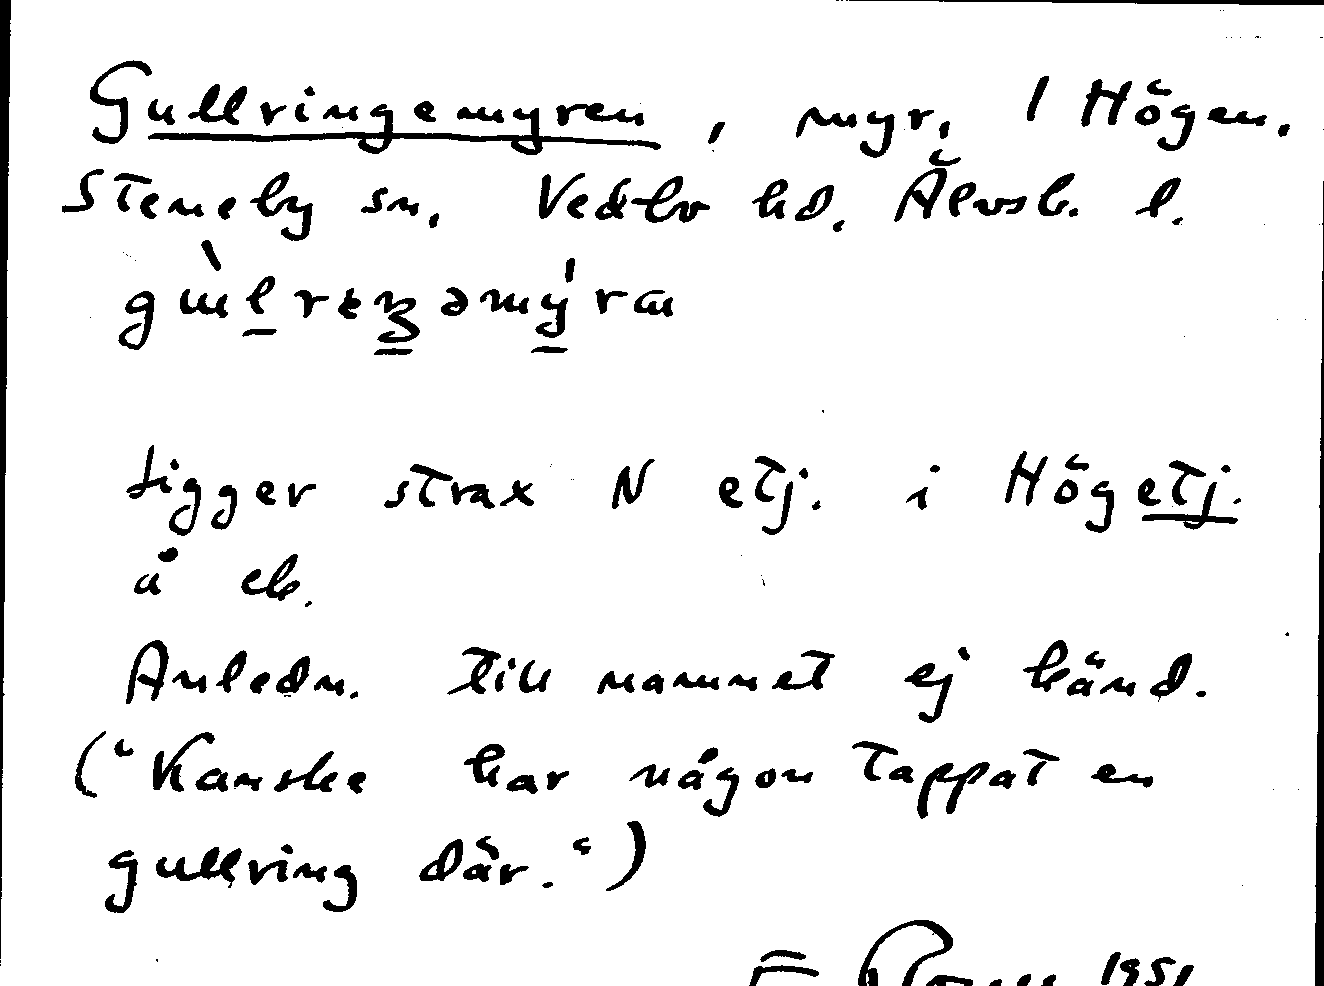 Gullringemyren, myr, 1 Högen,
Steneby sn, Vedbo hd. Älvsb. l.
Ligger strax N etj. i Högetj.
å eb.
Anledn. till namnet ej känd.
("Kanske har någon tappat en
gullring där.")
1951